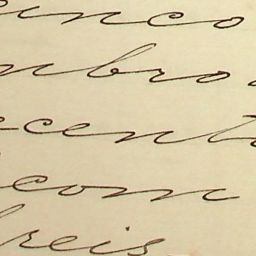 inco
mbro
cento
com
reis